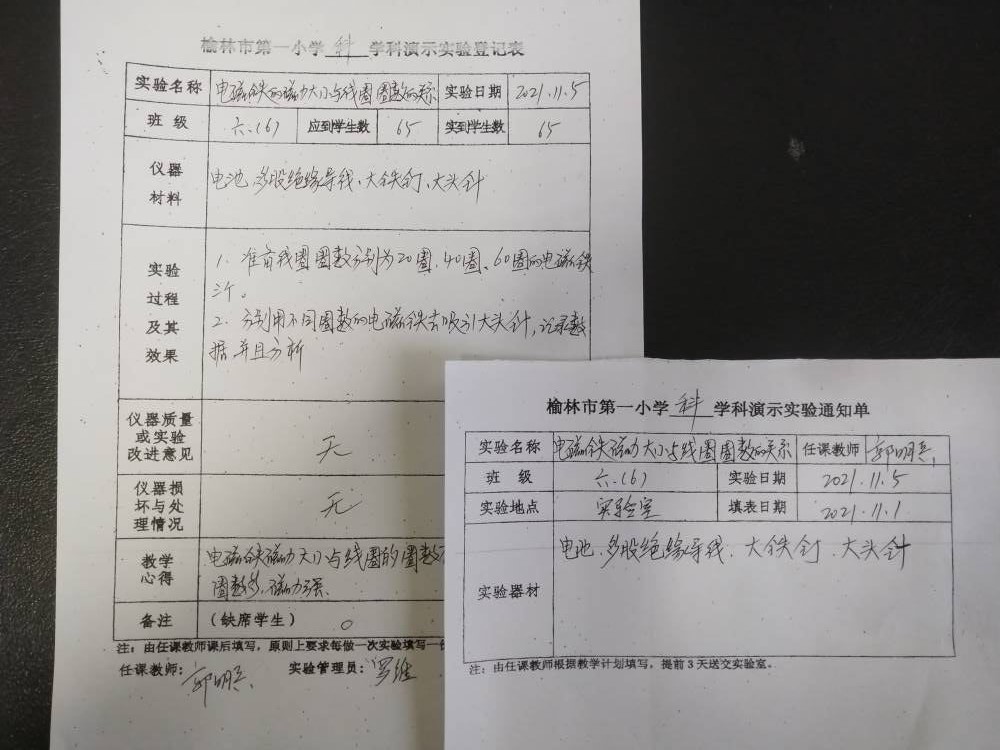 榆林市第一小学 科 学科演示实验登记表
实验名称 电磁铁的磁力大小与线圈圈数的关系 实验日期 2021.11.5
班 级 六.(6) 应到学生数 65 实到学生数 65
仪器
材料
电池、多股绝缘导线、大铁钉、大头针
实验
过程
及其
效果
1. 准备线圈圈数分别为20圈、40圈、60圈的电磁铁
三个。
2. 分别用不同圈数的电磁铁去吸引大头针,记录数
据并且分析
仪器质量
或实验
改进意见
无
仪器损
坏与处
理情况
无
教学
心得
电磁铁磁力大小与线圈的圈数
圈数多,磁力强.
备注 (缺席学生) 0
注:由任课教师课后填写,原则上要求每做一次实验填写一
任课教师: 郭明兵 实验管理员: 罗维
榆林市第一小学 科 学科演示实验通知单
实验名称 电磁铁磁力大小与线圈圈数的关系 任课教师 郭明兵
班 级 六.(6) 实验日期 2021.11.5
实验地点 实验室 填表日期 2021.11.1
实验器材
电池、多股绝缘导线、大铁钉、大头针
注:由任课教师根据教学计划填写,提前3天送交实验室。